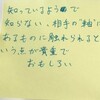 知っているようで
知らない、相手の"軸"に
あるものに触れられると
いう点が貴重で
おもしろい